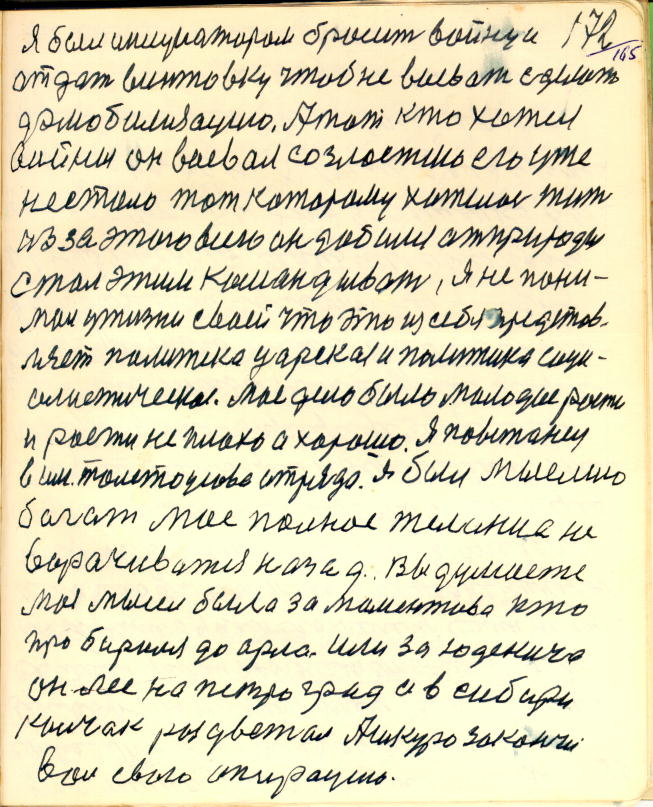 Я был инициатором бросит войну и 172
165
отдат винтовку чтоб не воеват сделать
демобилизацию. А тот кто хотел
войны он воевал со злостью его уже
нестало тот которому хотелос жит
из за этого всего он добился от природы
стал этим командыват, я не пони-
мал у жизни своей что это из себя предстов-
ляет политика царская и политика соци-
алистическая. Мое дело было молодые рости
и рости не плохо а хорошо. Я повстанец
в им. толстоусова отряда. Я был мыслию
богат мое полное желание не
ворачиватся назад. Вы думаете
моя мысль была за мамонтова кто
про бирался до арла. или за юденича
он лез на петроград а в сибири
колчак розцветал А шкуро закончи
вал свою опирацию.